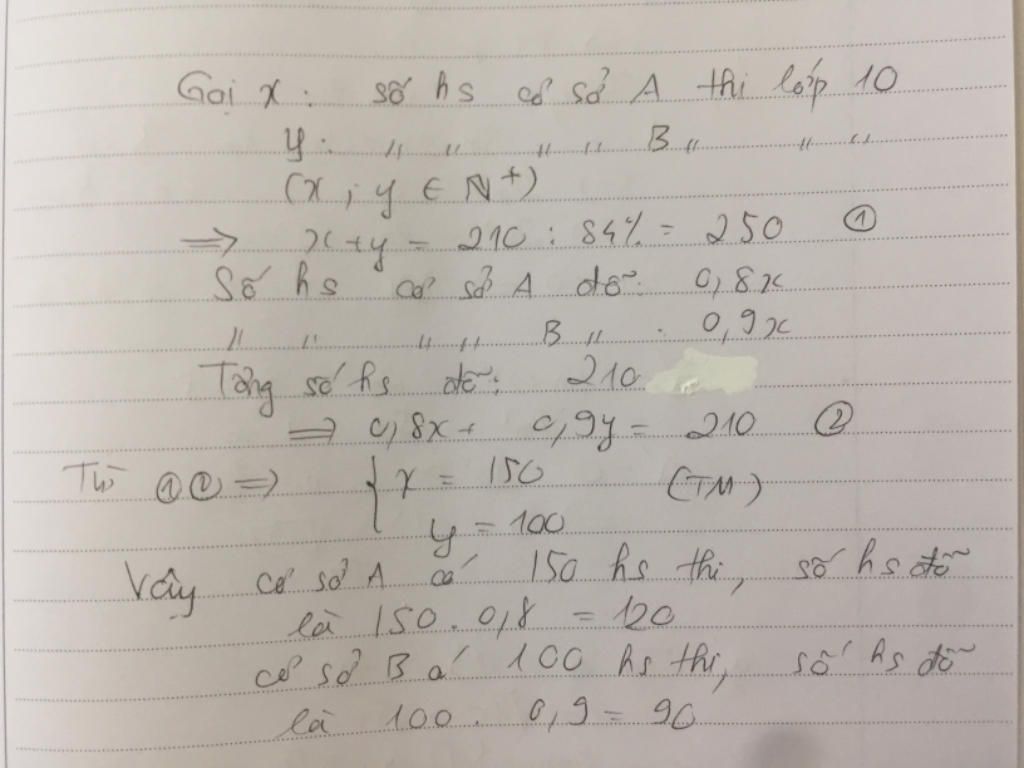 Gọi x : số hs cơ sở A thi lớp 10
y : " " " " B " " "
(x ; y ∈ N⁺)
⇒ x + y = 210 : 84% = 250 ①
Số hs cơ sở A đỗ: 0,8x
" " " " B " : 0,9x
Tổng số hs đỗ: 210
⇒ 0,8x + 0,9y = 210 ②
Từ ①② ⇒ { x = 150 (TM)
y = 100
Vậy cơ sở A có 150 hs thi, số hs đỗ
là 150 . 0,8 = 120
cơ sở B có 100 hs thi, số hs đỗ
là 100 . 0,9 = 90